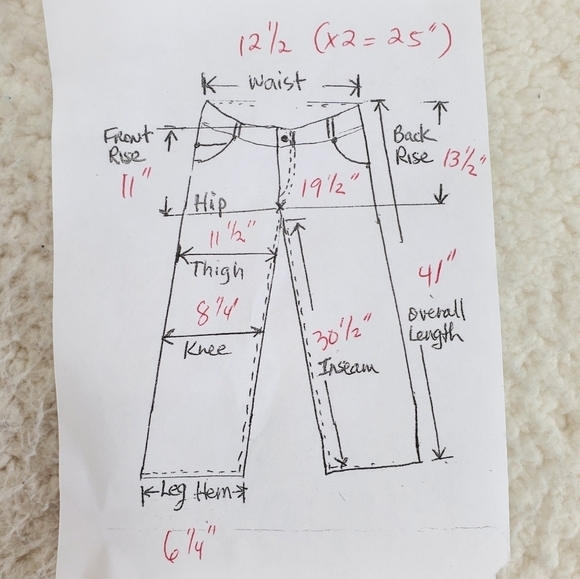 12 1/2 (x2 = 25")
Waist
Front
Rise
11"
Back
Rise 13 1/2"
Hip
19 1/2"
11 1/2"
Thigh
8 1/4"
Knee
41"
Overall
Length
30 1/2"
Inseam
Leg Hem
6 1/4"